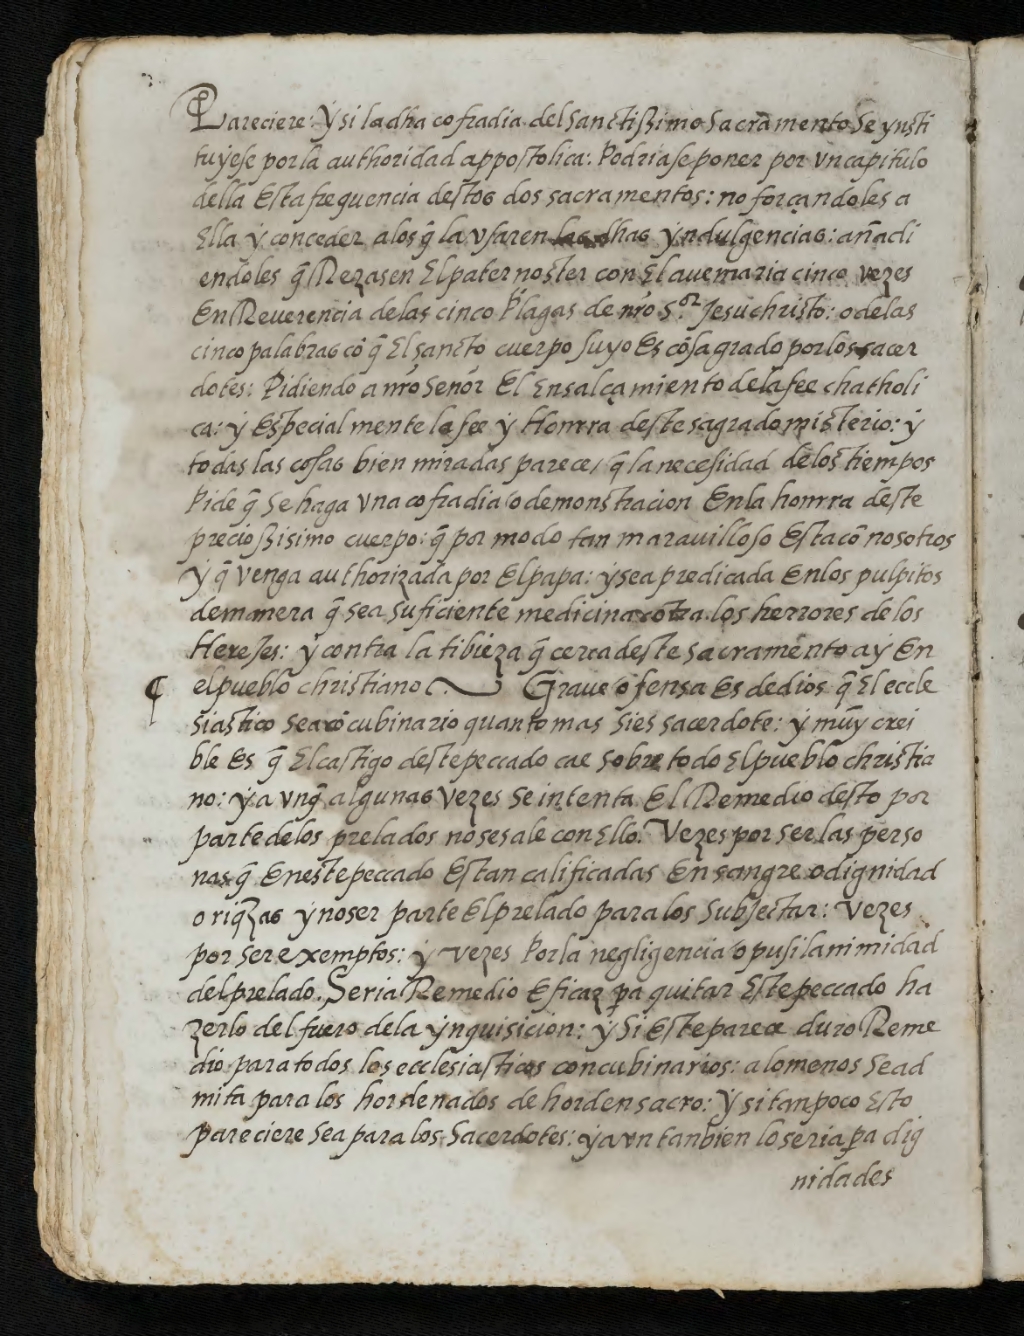 Pareciere: y si la dha cofradia del sanctissimo sacramento se ynsti
tuyese por la authoridad appostolica: Podriase poner por vn capitulo
della Esta frequencia destos dos sacramentos: no forçandoles a
Ella y conceder a los q̃ la vsaren las dhas yndulgencias: añadi
endoles q̃ Rezasen El paternoster con El auemaria cinco vezes
En Reuerencia de las cinco Plagas de nrō s.or Jesuchristo: o de las
cinco palabras cō q̃ El sancto cuerpo suyo Es cōsagrado por los sacer
dotes: Pidiendo a nrō señor El Ensalçamiento de la fee chatholi
ca: y Especialmente la fee y Honrra deste sagrado misterio: y
todas las cosas bien miradas parece, q̃ la necesidad de los tiempos
Pide q̃ se haga vna cofradia o demonstracion En la honrra deste
preciossisimo cuerpo: q̃ por modo tan marauilloso Esta cō nosotros
y q̃ venga authorizada por El papa: y sea predicada En los pulpitos
de manera q̃ sea suficiente medicina cōtra los herrores de los
Herejes: y contra la tibieza q̃ cerca deste sacramento ay En
¶ el pueblo christiano. Graue ofensa Es de dios q̃ El eccle
siastico sea cōcubinario quanto mas si es sacerdote: y muy crei
ble Es q̃ El castigo deste peccado cae sobre todo El pueblo christia
no: y avnq̃ algunas vezes se intenta El Remedio desto por
parte de los prelados no se sale con Ello. Vezes por ser las perso
nas q̃ En este peccado Estan calificadas En sangre o dignidad
o riq̃zas y no ser parte El prelado para los subjectar: vezes
por ser exemptos: y vezes Por la negligencia o pusilanimidad
del prelado. Seria Remedio Eficaz pa quitar Este peccado ha
zerlo del fuero de la ynquisicion: y si Este parece duro Reme
dio para todos los ecclesiasticos concubinarios: a lo menos se ad
mita para los hordenados de horden sacro: y si tanpoco Esto
pareciere sea para los Sacerdotes: y avn tanbien lo seria pa dig
nidades